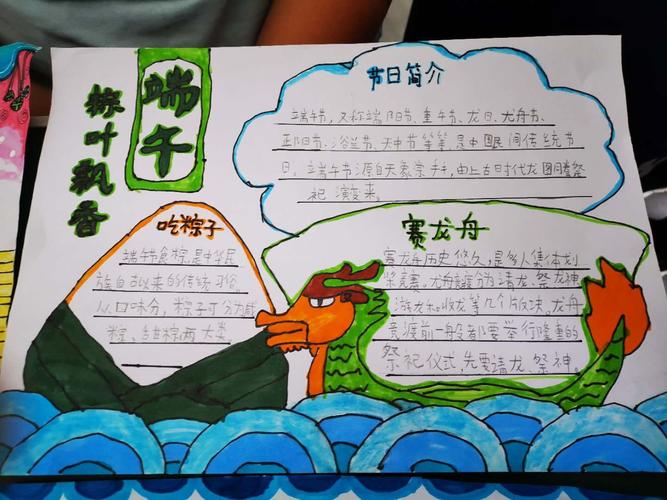 粽叶飘香
端午
节日简介
端午节，又称端阳节、重午节、龙日、龙舟节、
正阳节、浴兰节、天中节等等，是中国民间传统节
日。端午节源自天象崇拜，由上古时代龙图腾祭
祀演变来。
吃粽子
端午节食粽，是中华民
族自古以来的传统习俗。
从口味分，粽子可分为咸
粽、甜粽两大类
赛龙舟
赛龙舟历史悠久，是多人集体划
桨竞赛。龙舟竞渡分为请龙、祭龙神
游龙和收龙等几个版决。龙舟
竞渡前一般都要举行隆重的
祭祀仪式，先要请龙、祭神。